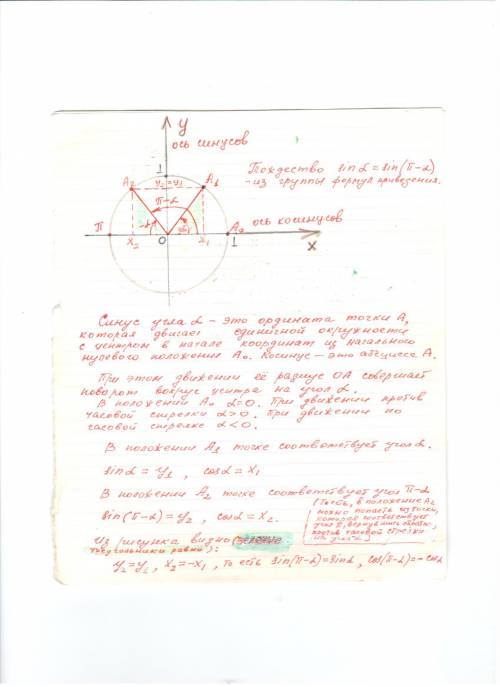 y
ось синусов
1
A₂ y₂=y₁ A₁
Тождество sinα = sin(π-α)
- из группы формул приведения.
π-α
π -α α A₀ ось косинусов
x₂ O x₁ 1 x
Синус угла α - это ордината точки А,
которая двигает единичной окружности
с центром в начале координат из начального
нулевого положения А₀. Косинус - это абсцисса А.
При этом движении её радиус ОА совершает
поворот вокруг центра на угол α.
В положении А₀ α=0. При движении против
часовой стрелки α>0. При движении по
часовой стрелке α<0.
В положении А₁ точке соответствует угол α.
sinα = y₁ , cosα = x₁
В положении А₂ точке соответствует угол π-α
sin(π-α) = y₂ , cosα = x₂.
(То есть, в положение А₂
можно попасть из точки,
которая соответствует
углу π, вернувшись обратно,
против часовой стрелки
на угол α)
Из рисунка видно (зеленые
треугольники равны):
y₂=y₁, x₂=-x₁, то есть sin(π-α)=sinα, cos(π-α)=-cosα